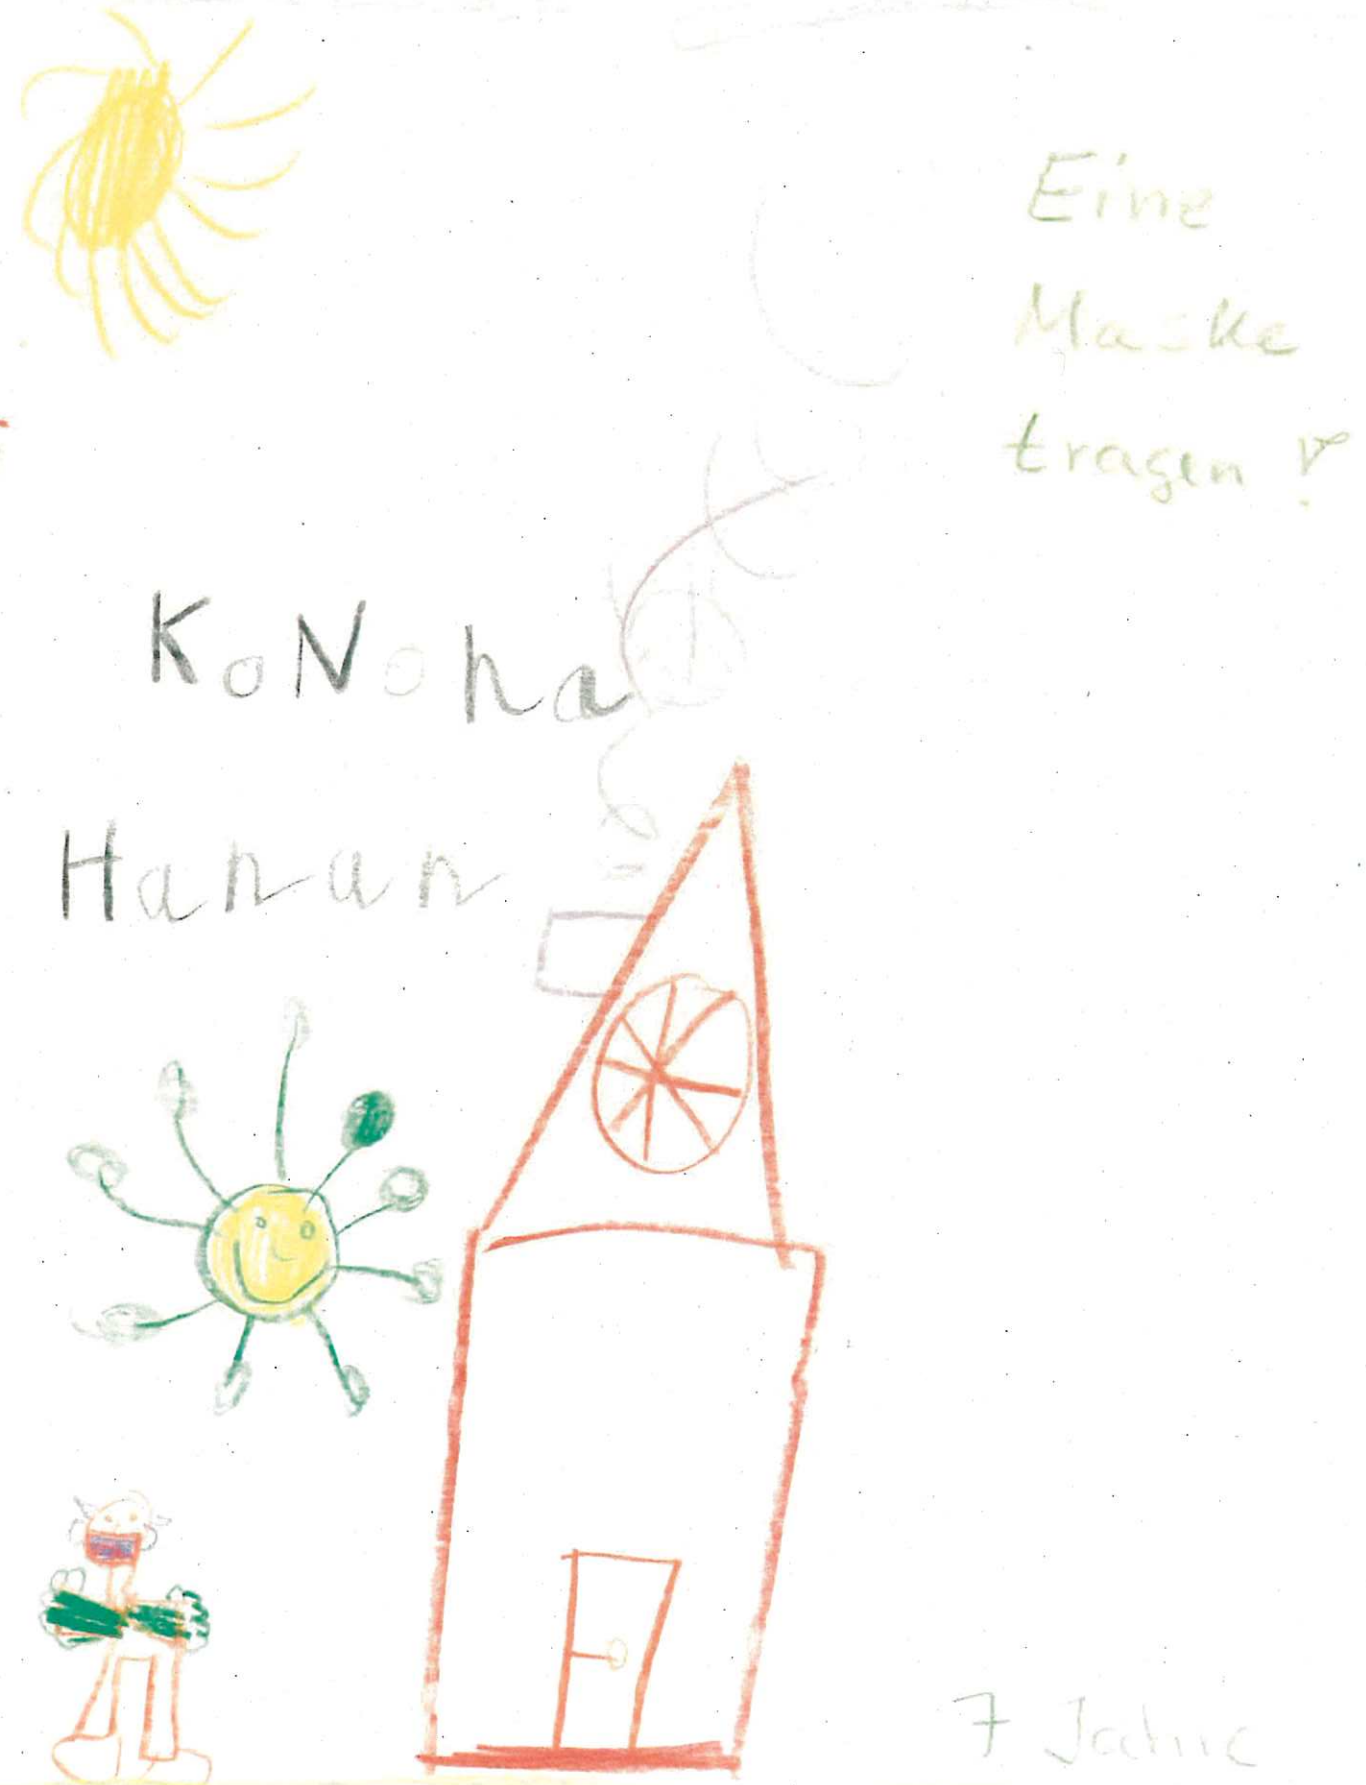 Eine
Maske
tragen !
KoNoha
Hanan
7 Jahre